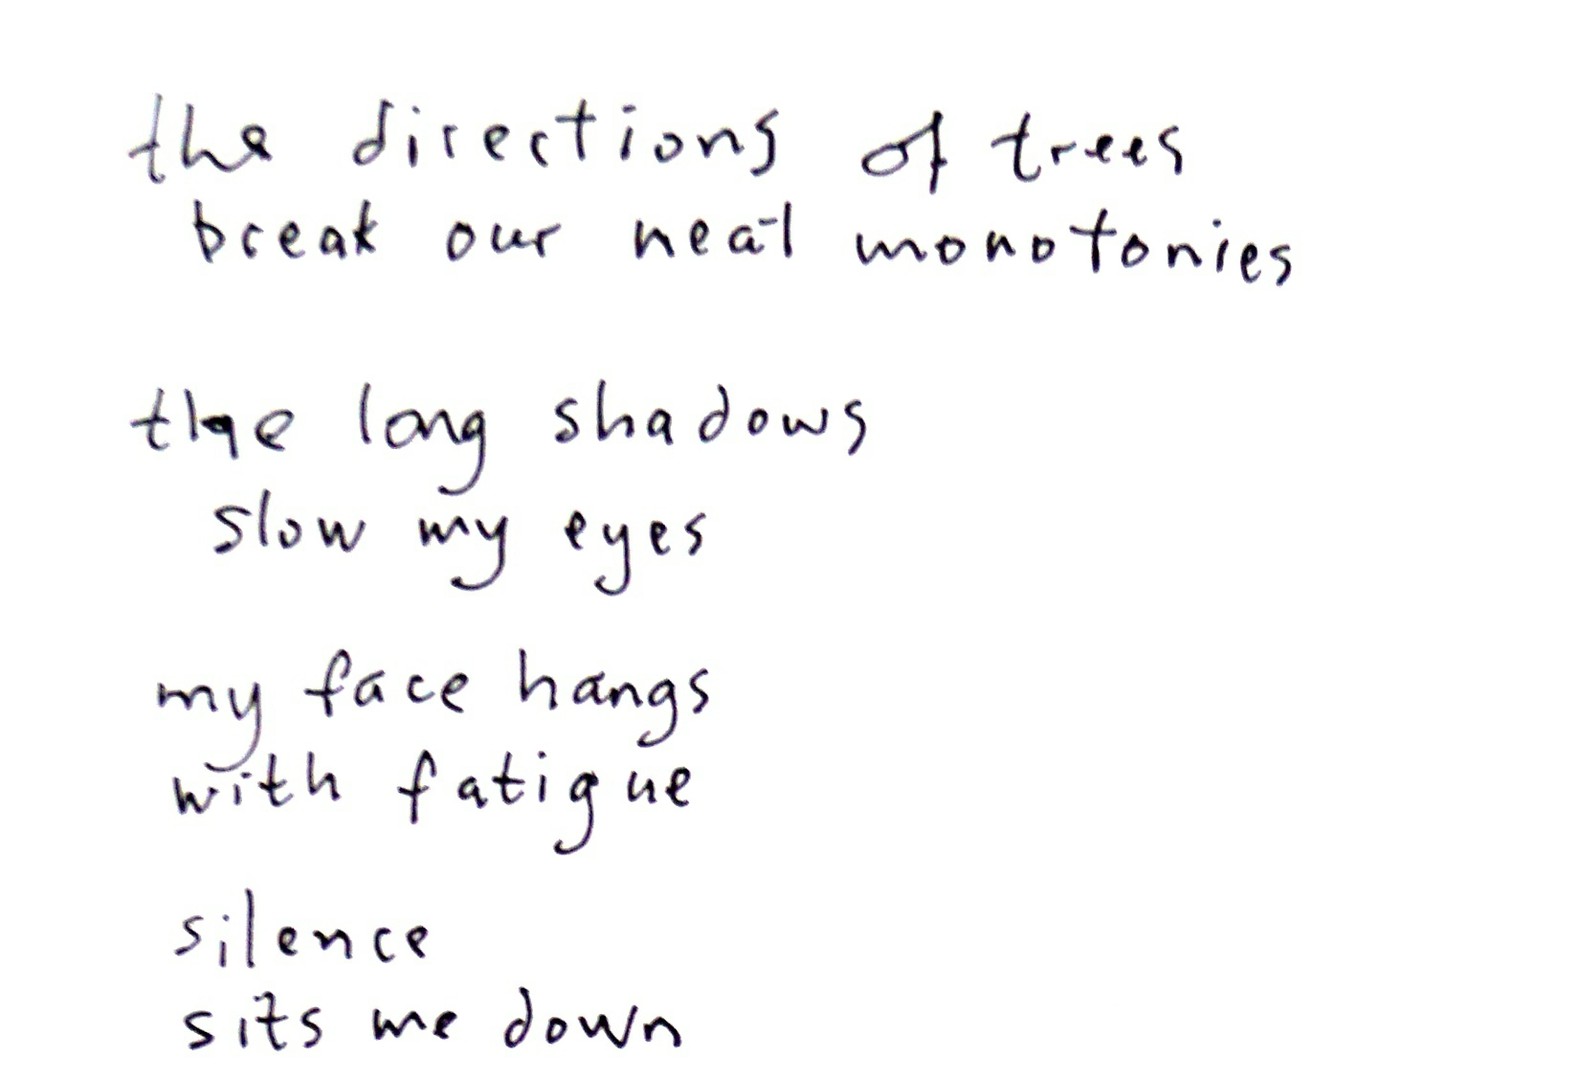 the directions of trees
break our neat monotonies
the long shadows
slow my eyes
my face hangs
with fatigue
silence
sits me down